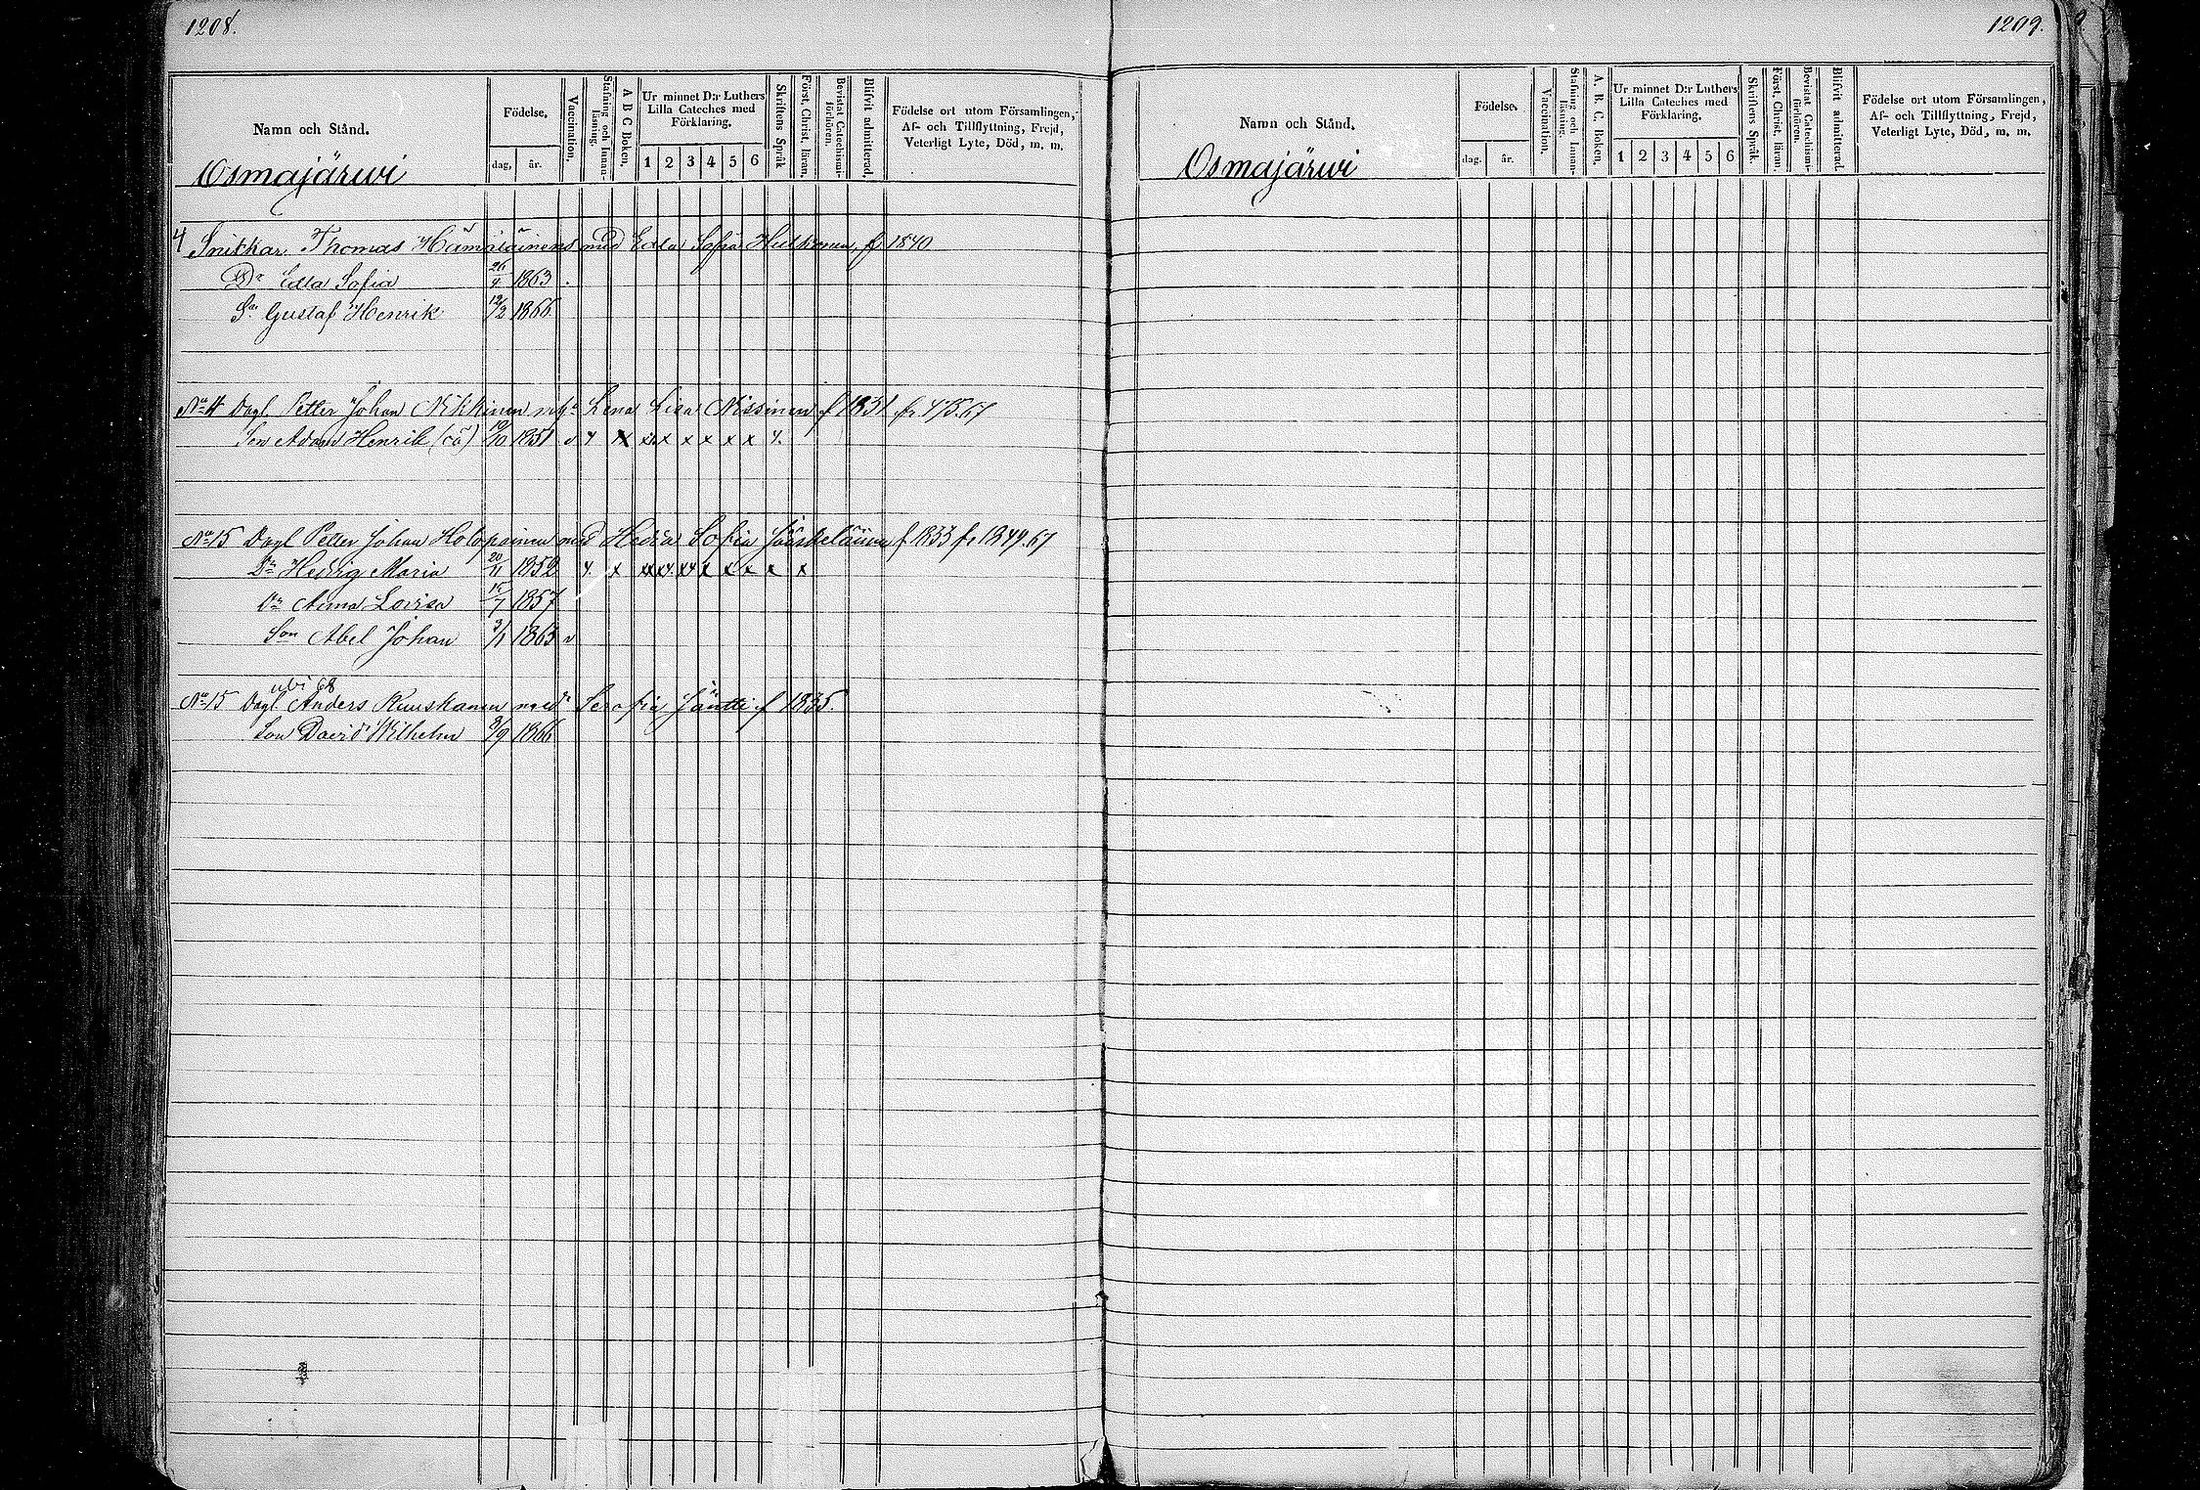 1208.
Namn och Stånd.
Födelse.
dag, år.
Vaccination.
Stafning och Innan-läsning.
A B C Boken.
Ur minnet D:r Luthers
Lilla Cateches med
Förklaring.
1 2 3 4 5 6
Skriftens Språk
Först. Christ. läran.
Bevistat Catechismi-förhören.
Blifvit admitterad.
Födelse ort utom Församlingen,
Af- och Tillflyttning, Frejd,
Veterligt Lyte, Död, m. m.
Osmajärwi
4 Snikkar. Thomas Hämäläinens med Edla Sofia f 1840
Dr Edla Sofia 26/4 1863
Sn Gustaf Henrik 12/2 1866
No 4 Dagl. Petter Johan Nikkinen Lena Lisa Nissinen f 1831 fr 475.67
Son Adam Henrik 19/10 1851 v x x x x x x x
No 15 Dagl Petter Johan Holopainen med Hedda Sofia Jääskeläinen f 1833 fr 1249.67
Dr Hedvig Maria 20/11 1852 x x x x x x
Dr Anna Lovisa 15/7 1857
Son Abel Johan 3/1 1863 v
ubi 68
No 15 Dagl. Anders Ruuskanen med Serafia Jäntti f 1835.
Son David Wilhelm 2/9 1866
1209.
Namn och Stånd.
Födelse.
dag. år.
Vaccination.
Stafning och Innan-läsning.
A. B. C. Boken.
Ur minnet D:r Luthers
Lilla Cateches med
Förklaring.
1 2 3 4 5 6
Skriftens Språk.
Först. Christ. läran.
Bevistat Catechismi-förhören.
Blifvit admitterad.
Födelse ort utom Församlingen,
Af- och Tillflyttning, Frejd,
Veterligt Lyte, Död, m. m.
Osmajärwi